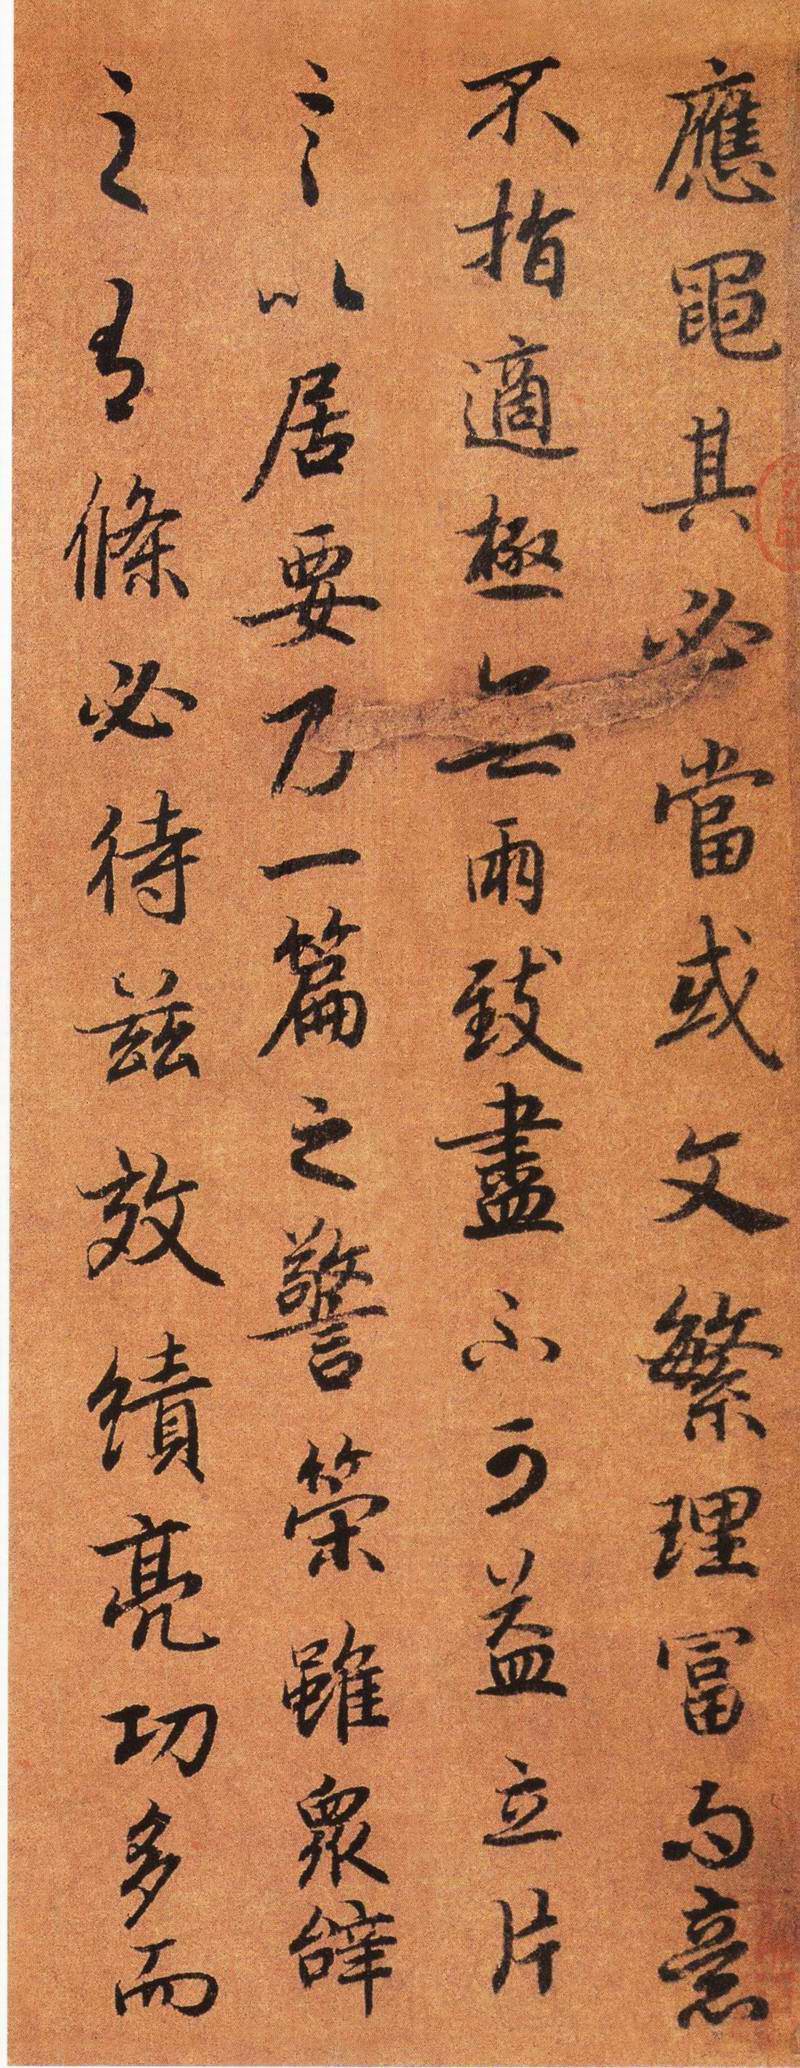 應黽其必當或文繁理冨而意
不指適極無兩致盡不可益立片
言以居要乃一篇之警策雖衆辝
之有條必待茲效績亮功多而